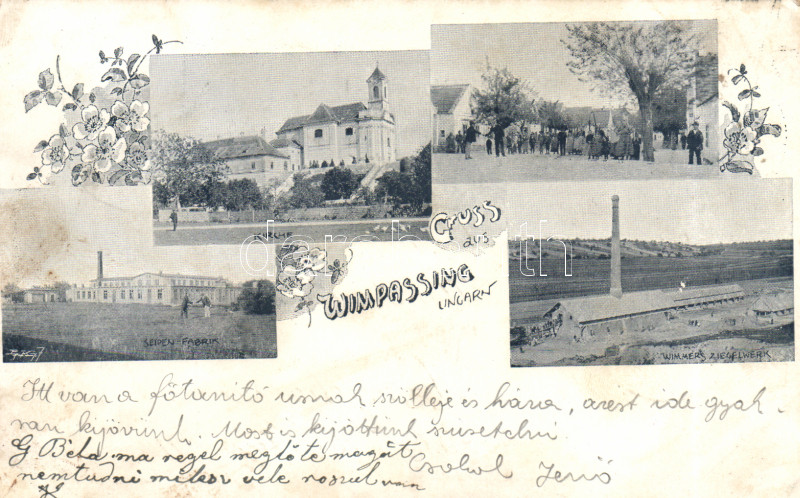 KIRCHE
Gruss
aus
WIMPASSING
UNGARN
SEIDEN-FABRIK
WIMMER'S ZIEGELWERK
Itt van a főtanító úrnak szőlleje és háza, azért ide gyak-
ran kijövünk. Most is kijöttünk szüretelni
G Béla ma regel meglőte magát
nemtudni mi lesz vele roszul van
Csokol Jenő